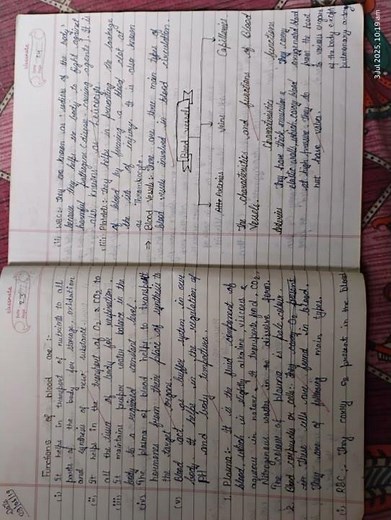 Functions of blood are :-
(i) It helps in transport of nutrients to all
parts of the body for storage, oxidation
and synthesis of new substance
(ii) It helps in the transport of O2 & CO2 to
all the tissue of body for respiration
(iii) It maintains proper water balance in the
body to a required constant level.
(iv) The plasma of blood helps to transport
hormones from their place of synthesis to
the target organs.
(v) Blood act as buffer system in our
body it helps in the regulation of
PH and body temperature.
1. Plasma:- It is the fluid component of
blood which is slightly alkaline viscous &
aqueous in nature. It transports food, CO2,
Nitrogenous waste in dissolve form.
The colour of plasma is pale-yellow
2. Blood corpuscles or cells:-
These cells are found in blood.
They are of following main types.
(i) RBC :- They carry O2 present in the blood
(ii) WBC:- They are known as soldier of the body,
because they help our body to fight against
harmful pathogens (disease causing agents). It is
also known as
(iii) Platelets:- They helps in preventing the leakage
of blood by forming a blood clot at
the site of injury. It is also known
as
=> Blood Vessels:- There are three main types of
blood vessel involved in blood circulation.
Blood vessels
Capillaries
The characteristics and functions of blood
Vessels
Characteristics
functions
They have thick muscular &
elastic walls which carry blood
at high pressure. They do
not have valves.
They carry
blood
from the heart
to various organs
of the body except
pulmonary artery
3 Jul 2025, 10:19 am